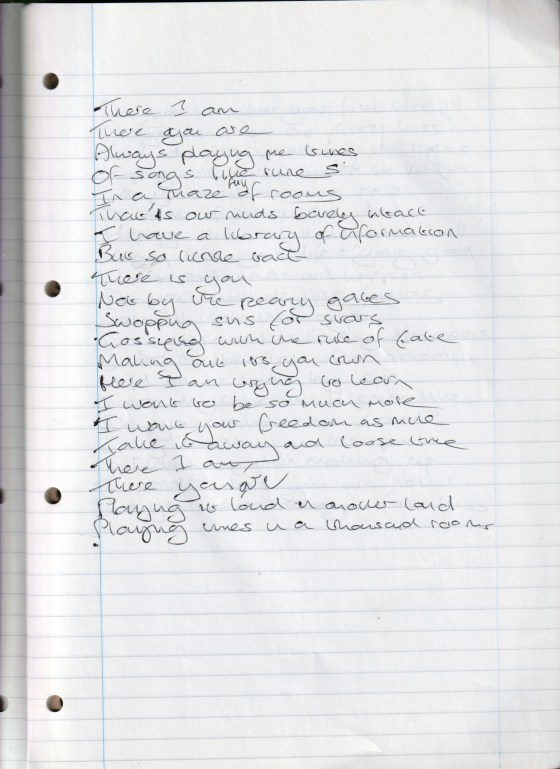 There I am
There you are
Always playing me tunes
Of songs like runes
In a maze full of rooms
That's our minds barely intact
I have a library of information
But so little tact
There is you
Not by the pearly gates
Swopping sins for stars
Gossiping with the rule of fate
Making out its you turn
Here I am trying to learn
I want to be so much more
I want your freedom as mine
Take it away and loose time
There I am,
There you are
Playing it loud in another land
Playing tunes in a thousand rooms